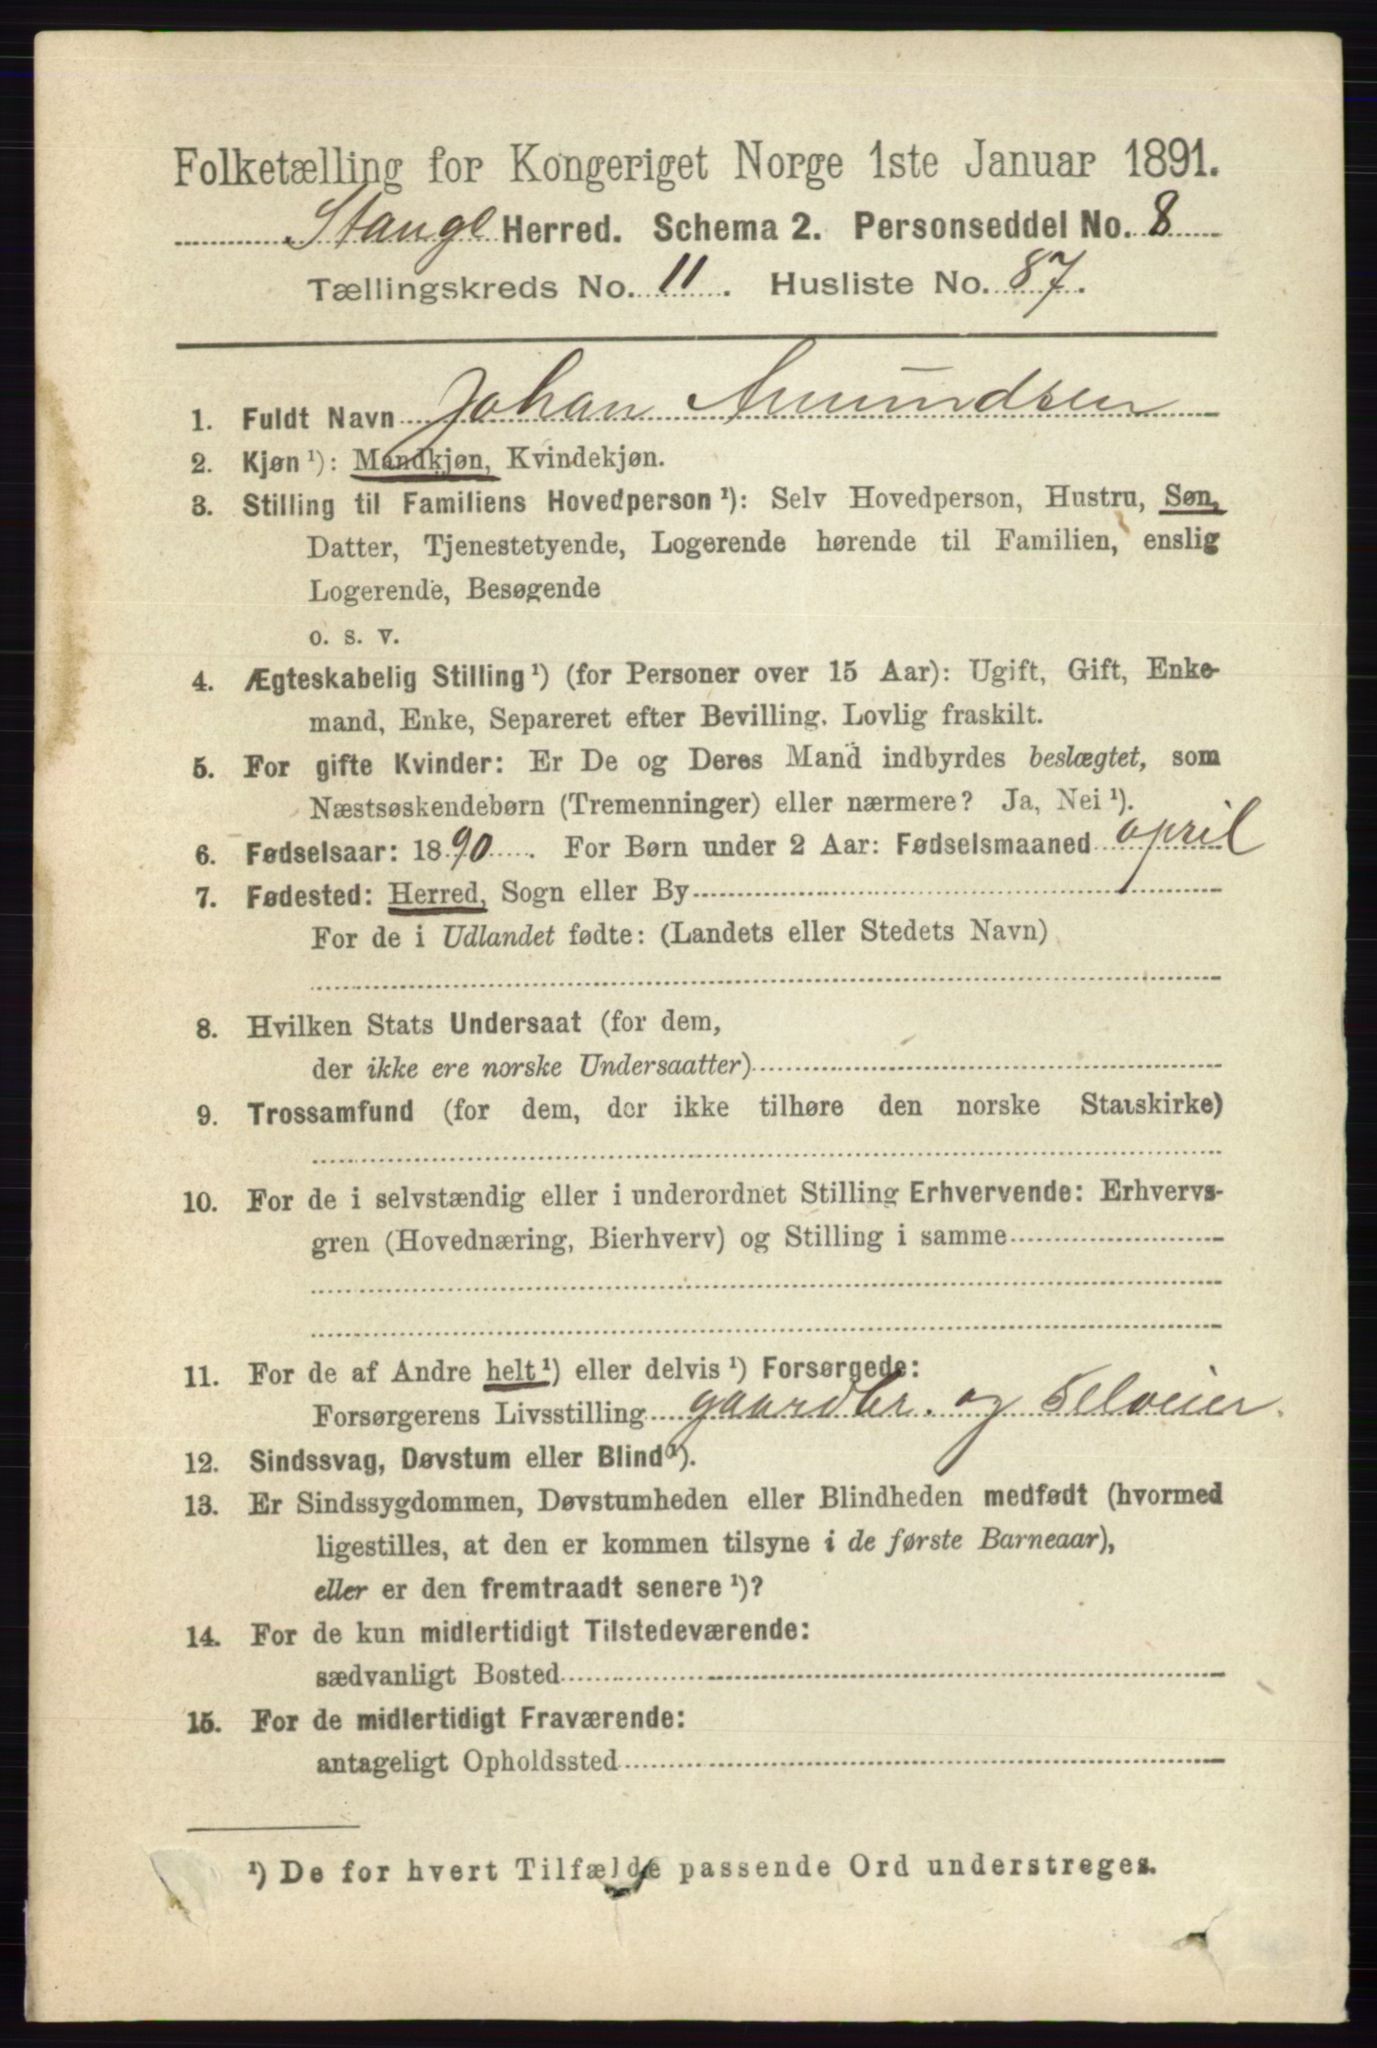 Folketælling for Kongeriget Norge 1ste Januar 1891.
Stange Herred. Schema 2. Personseddel No. 8
Tællingskreds No. 11. Husliste No. 87.
1. Fuldt Navn Johan Amundsen
2. Kjøn ¹): Mandkjøn, Kvindekjøn.
3. Stilling til Familiens Hovedperson ¹): Selv Hovedperson, Hustru, Søn,
Datter, Tjenestetyende, Logerende hørende til Familien, enslig
Logerende, Besøgende
o. s. v.
4. Ægteskabelig Stilling ¹) (for Personer over 15 Aar): Ugift, Gift, Enke-
mand, Enke, Separeret efter Bevilling. Lovlig fraskilt.
5. For gifte Kvinder: Er De og Deres Mand indbyrdes beslægtet, som
Næstsøskendebørn (Tremenninger) eller nærmere? Ja, Nei ¹).
6. Fødselsaar: 1890. For Børn under 2 Aar: Fødselsmaaned april
7. Fødested: Herred, Sogn eller By
For de i Udlandet fødte: (Landets eller Stedets Navn)
8. Hvilken Stats Undersaat (for dem,
der ikke ere norske Undersaatter)
9. Trossamfund (for dem, der ikke tilhøre den norske Statskirke)
10. For de i selvstændig eller i underordnet Stilling Erhvervende: Erhvervs-
gren (Hovednæring, Bierhverv) og Stilling i samme
11. For de af Andre helt ¹) eller delvis ¹) Forsørgede:
Forsørgerens Livsstilling gaardbr. og Selveier.
12. Sindssvag, Døvstum eller Blind ¹).
13. Er Sindssygdommen, Døvstumheden eller Blindheden medfødt (hvormed
ligestilles, at den er kommen tilsyne i de første Barneaar),
eller er den fremtraadt senere ¹)?
14. For de kun midlertidigt Tilstedeværende:
sædvanligt Bosted
15. For de midlertidigt Fraværende:
antageligt Opholdssted
¹) De for hvert Tilfælde passende Ord understreges.